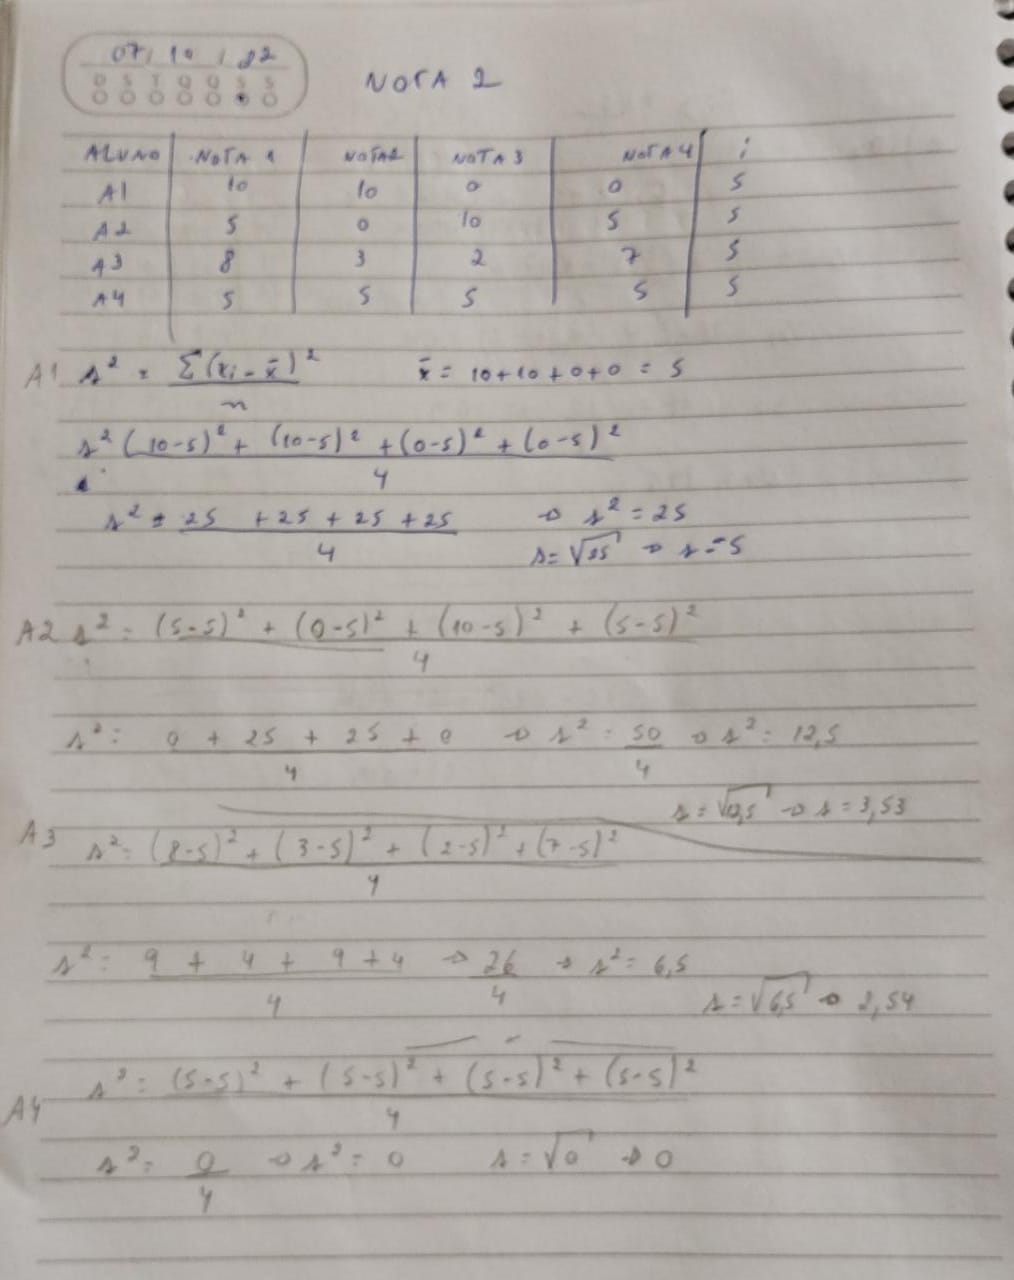 07 / 10 / 22
D S T Q Q S S
NOTA 2
ALUNO NOTA 1 NOTA2 NOTA 3 NOTA 4 i
A1 10 10 0 0 5
A2 5 0 10 5 5
A3 8 3 2 7 5
A4 5 5 5 5 5
A1 s² = Σ(xi - x̄)² / n x̄ = 10+10+0+0 = 5
s² (10-5)² + (10-5)² + (0-5)² + (0-5)² / 4
s² = 25 + 25 + 25 + 25 / 4 → s² = 25
s = √25 → s = 5
A2 s² = (5-5)² + (0-5)² + (10-5)² + (5-5)² / 4
s² = 0 + 25 + 25 + 0 / 4 → s² = 50 / 4 → s² = 12,5
s = √12,5 → s = 3,53
A3 s² = (8-5)² + (3-5)² + (2-5)² + (7-5)² / 4
s² = 9 + 4 + 9 + 4 / 4 → 26 / 4 → s² = 6,5
s = √6,5 → 2,54
A4 s² = (5-5)² + (5-5)² + (5-5)² + (5-5)² / 4
s² = 0 / 4 → s² = 0 s = √0 → 0